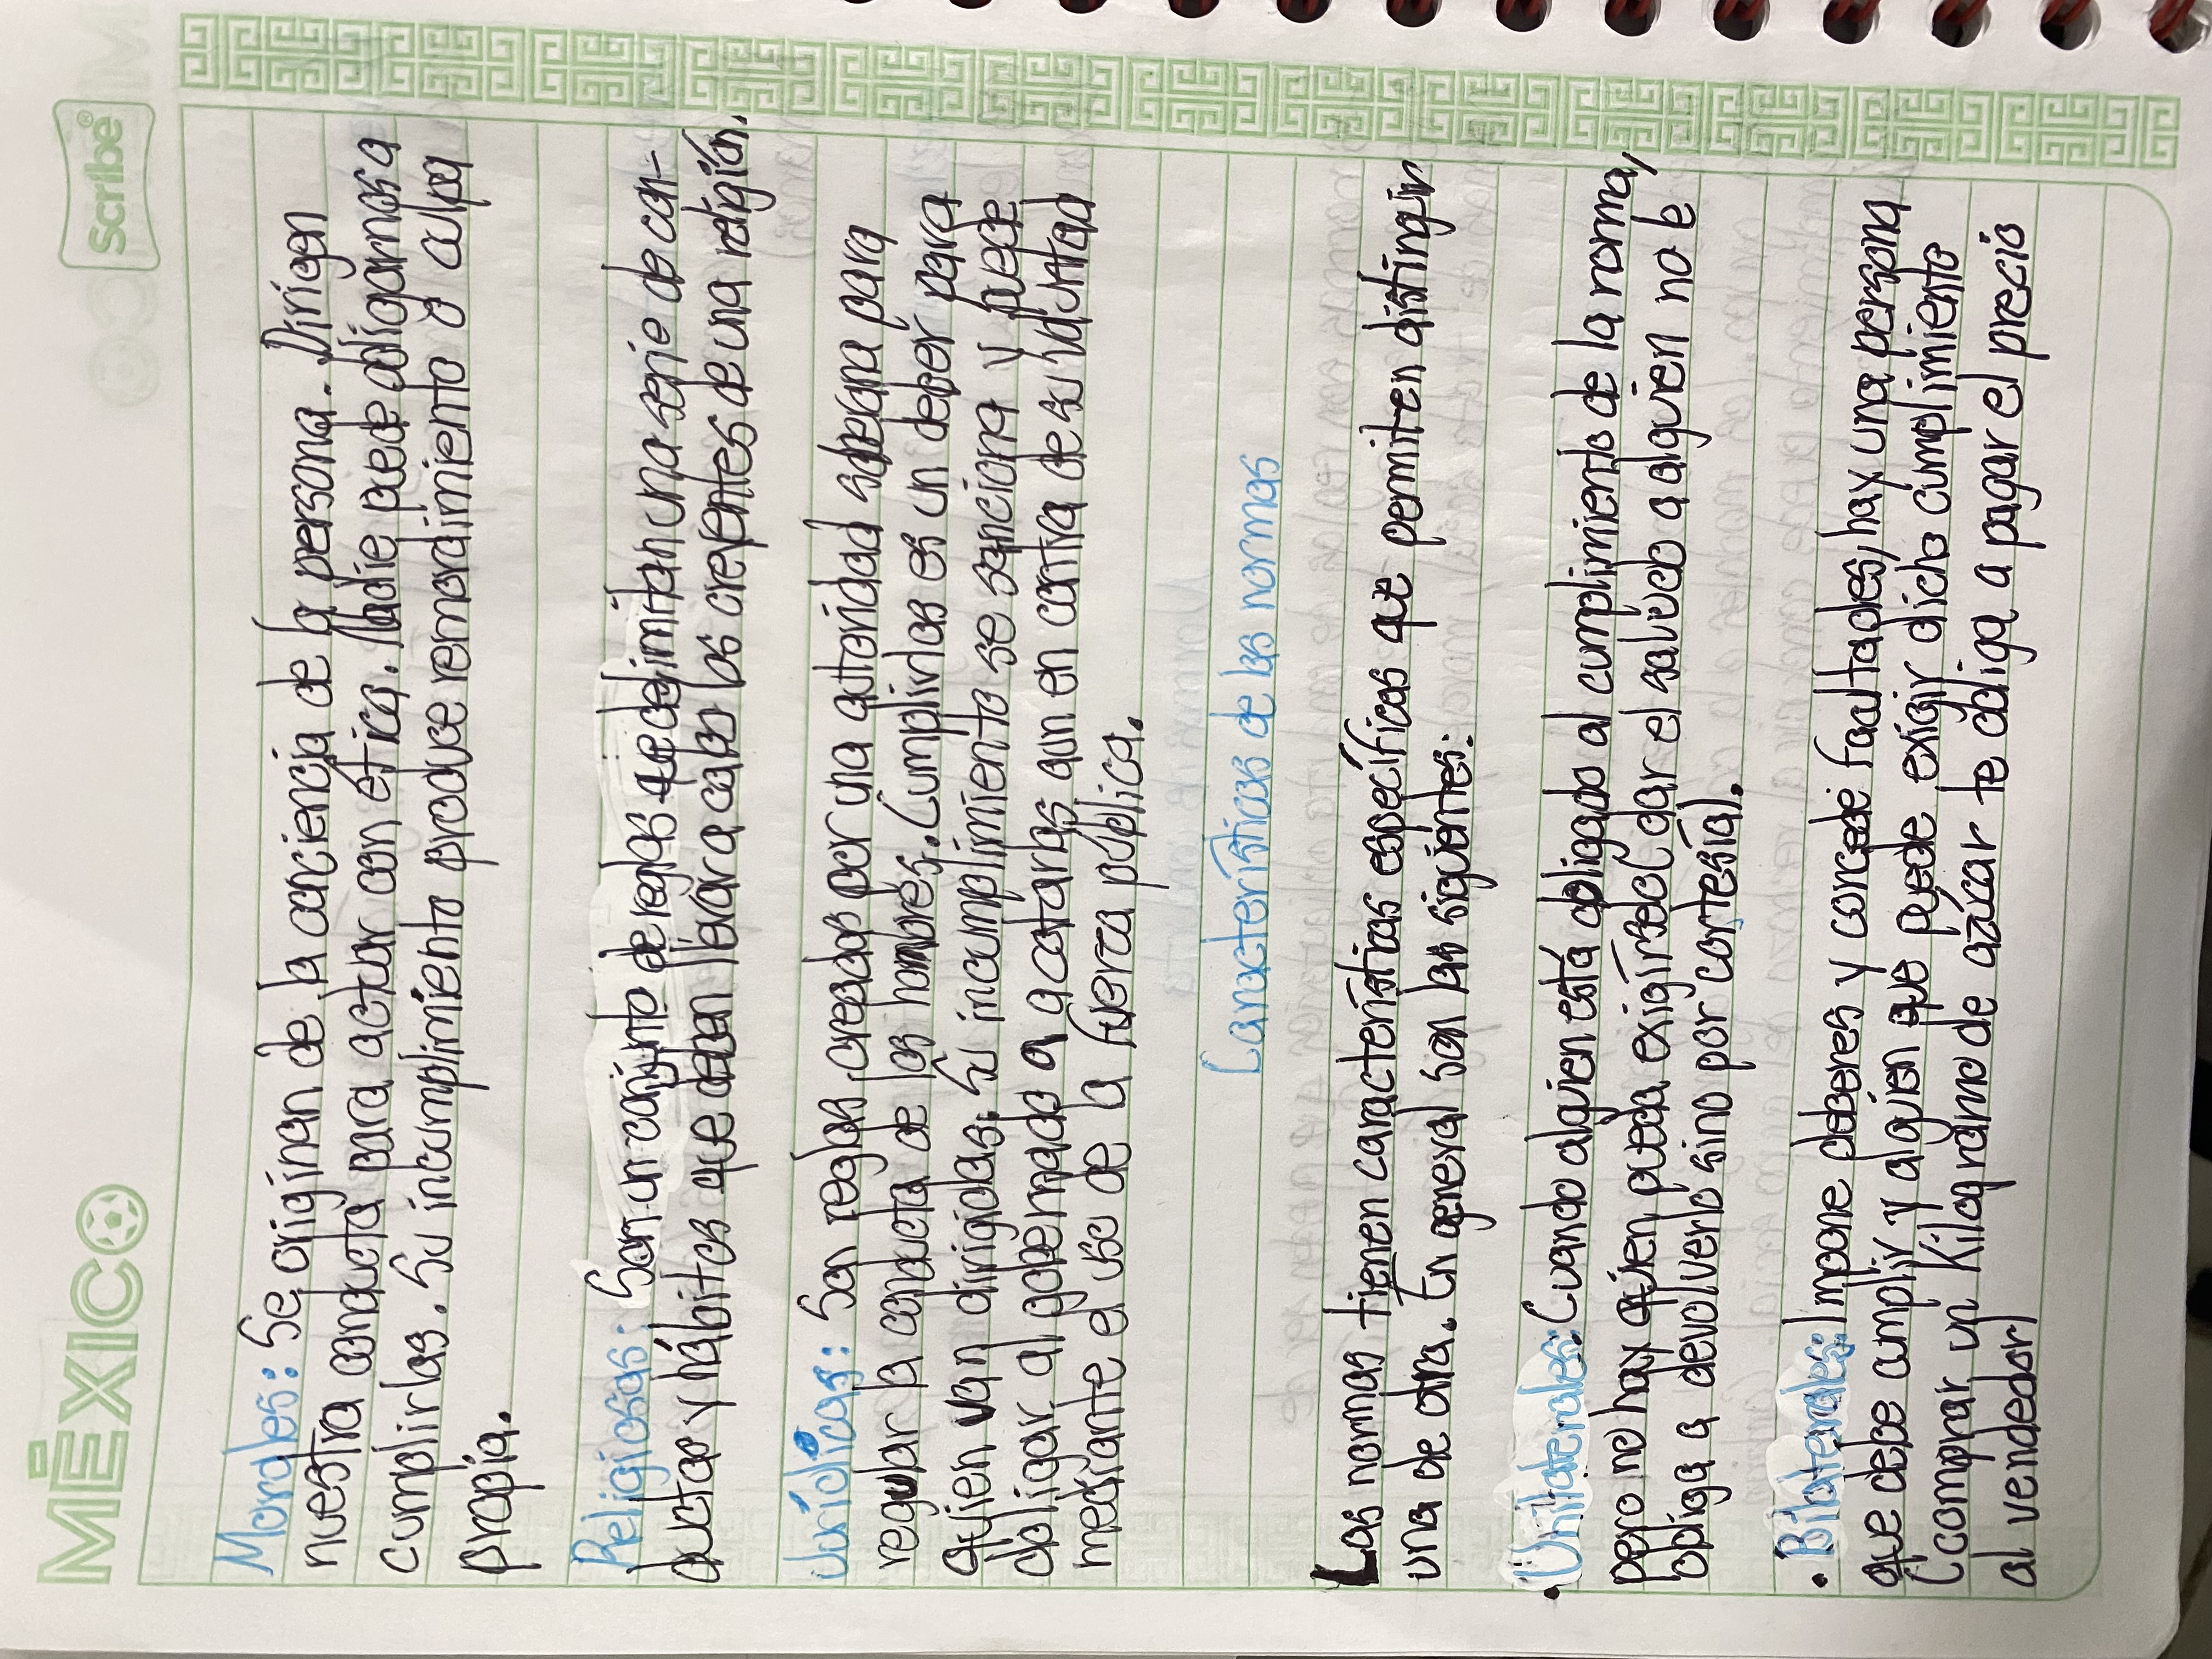 MÉXICO
Scribe®
Morales: Se originan de la conciencia de la persona. Dirigen
nuestra conducta para actuar con ética. Nadie puede obligarnos a
cumplirlas. Su incumplimiento produce remordimiento y culpa
propia.
Religiosas: Son un conjunto de reglas que delimitan una serie de con-
ductas y hábitos que deben llevar a cabo los creyentes de una religión.
Jurídicas: Son reglas creadas por una autoridad soberana para
regular la conducta de los hombres. Cumplirlas es un deber para
quien van dirigidas. Su incumplimiento se sanciona y puede
obligar al gobernado a acatarlas aun en contra de su voluntad
mediante el uso de la fuerza pública.
Características de las normas
Las normas tienen características específicas que permiten distinguir
una de otra. En general son las siguientes:
• Unilaterales: Cuando alguien está obligado al cumplimiento de la norma,
pero no hay quien pueda exigírselo (dar el saludo a alguien no le
obliga a devolverlo sino por cortesía).
• Bilaterales: Impone deberes y concede facultades, hay una persona
que debe cumplir y alguien que puede exigir dicho cumplimiento
(comprar un kilogramo de azúcar te obliga a pagar el precio
al vendedor)